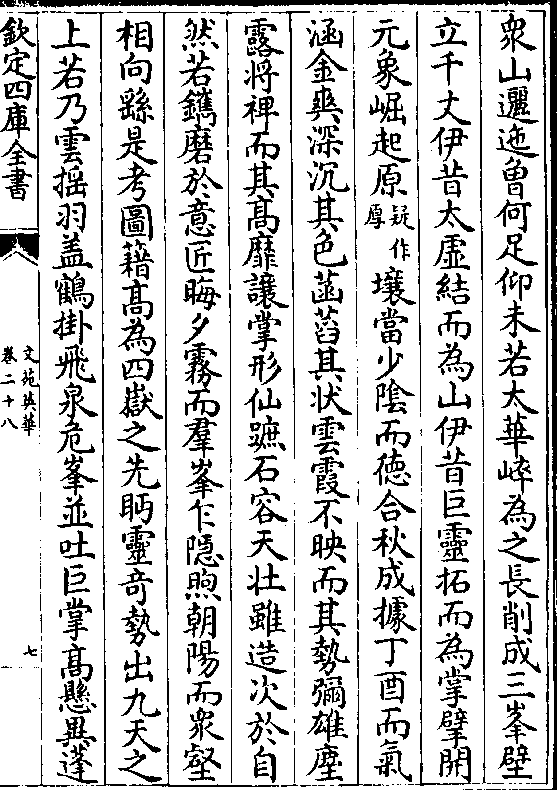 衆山邐迆曾何足仰未若太華崪為之長削成三峯壁
立千丈伊昔太虛結而為山伊昔巨靈拓而為掌擘開
元象崛起原疑作厚壤當少隂而徳合秋成據丁酉而氣
涵金爽深沉其色菡萏其状雲霞不映而其勢彌雄塵
露將禆而其髙靡讓掌形仙蹠石容天壮雖造次於自
然若鐫磨於意匠晦夕霧而羣峯乍隠煦朝陽而衆壑
相向繇是考圖藉髙為四嶽之先眄靈竒勢出九天之
上若乃雲揺羽盖鶴掛飛泉危峯並吐巨掌髙懸異蓬
欽定四庫全書
文苑英華
卷二十八
七